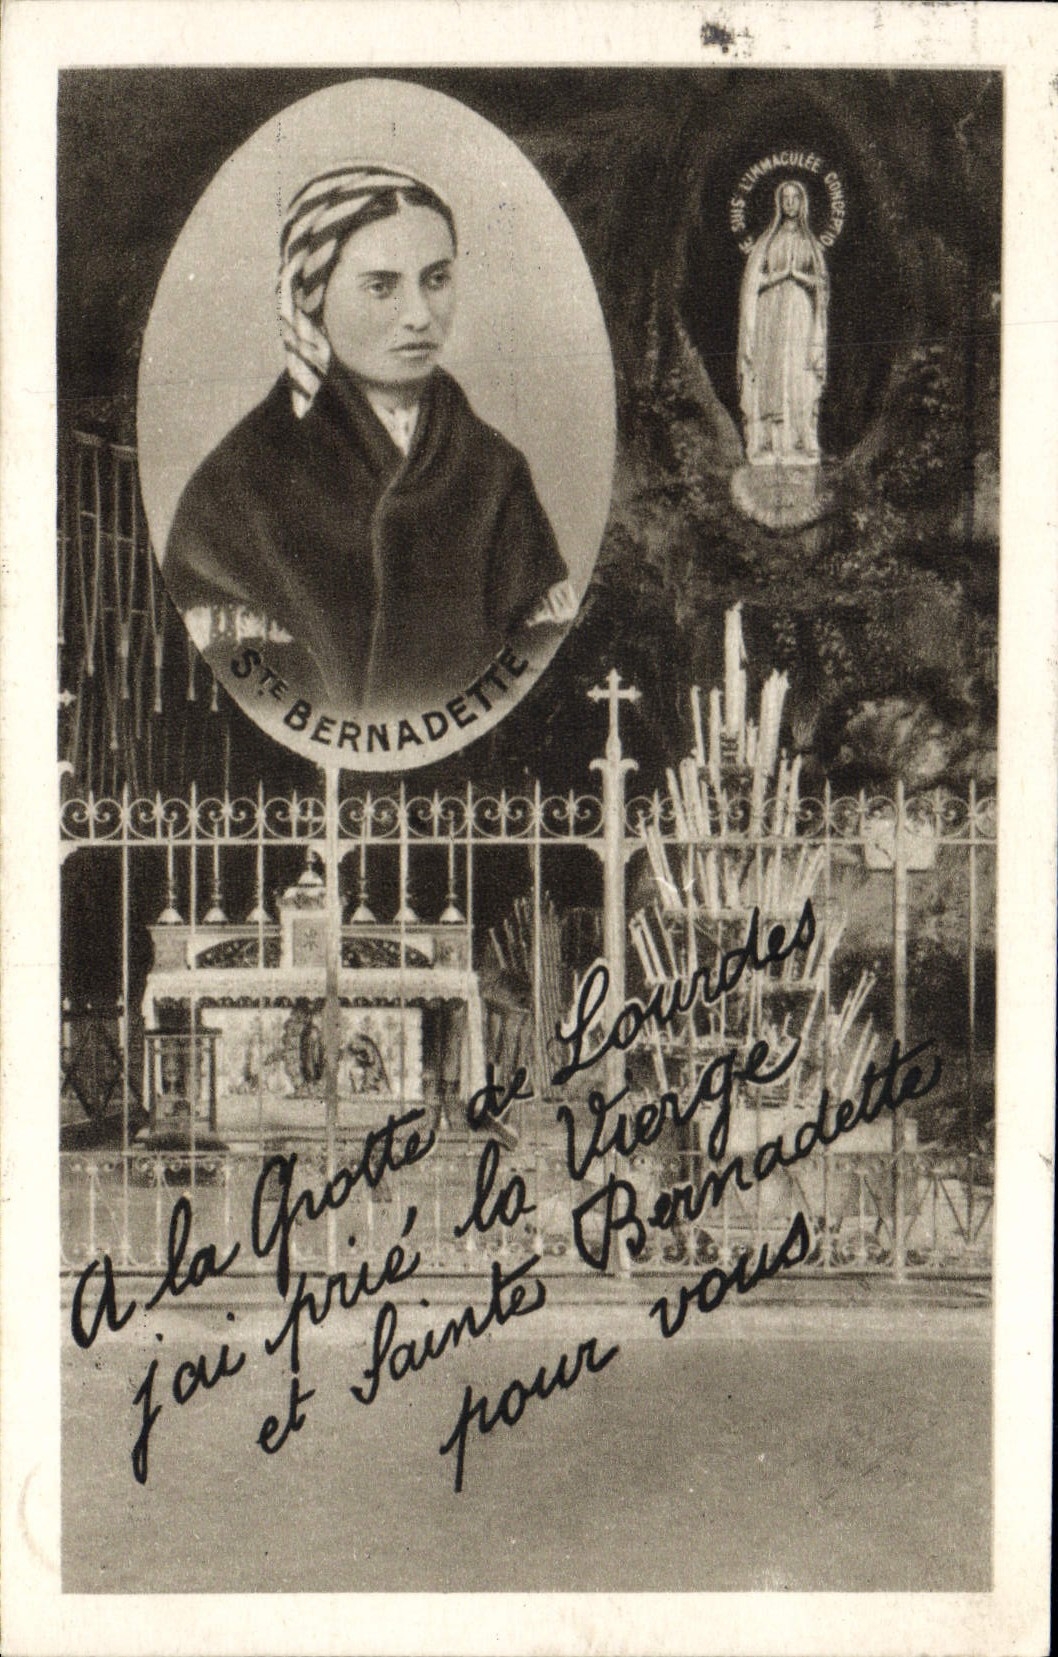 JE SUIS L'IMMACULÉE CONCEPTION
STE BERNADETTE
A la Grotte de Lourdes
j'ai prié, la Vierge
et Sainte Bernadette
pour vous